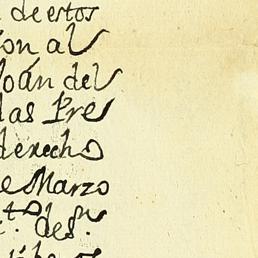 de estos
ion al
Joán del
las Pres
derecho
e Marzo
des.n